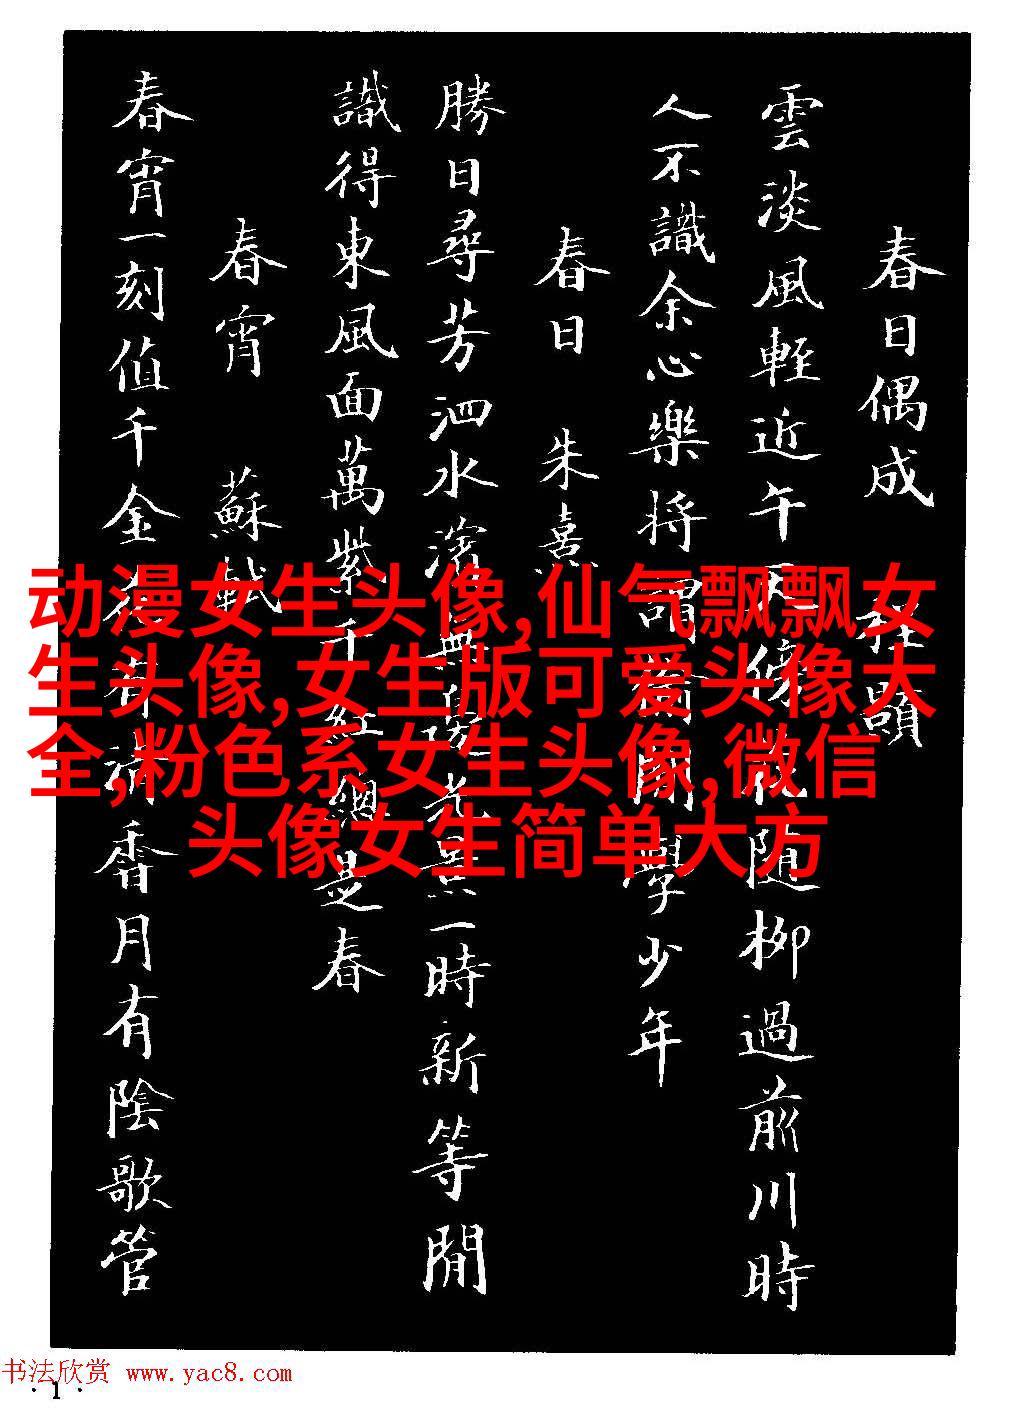 春日偶成 程顥
雲淡風輕近午天傍花随柳過前川時
人不識余心樂將謂偷閑學少年
春日 朱熹
勝日尋芳泗水濱無邊光景一時新等閒
識得東風面萬紫千紅總是春
春宵 蘇軾
春宵一刻值千金花有清香月有陰歌管
动漫女生头像,仙气飘飘女
生头像,女生版可爱头像大
全,粉色系女生头像,微信
头像女生简单大方
书法欣赏 www.yac8.com
·1·